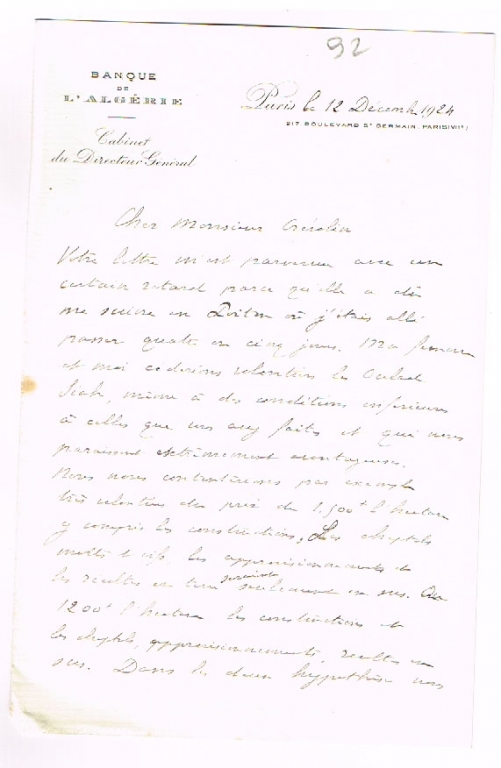 92
BANQUE
DE
L'ALGÉRIE
Cabinet
du Directeur Général
Paris le 12 Décemb 1924
217, BOULEVARD St GERMAIN, PARIS (VIIe)
Cher Monsieur
Votre lettre m'est parvenue avec un
certain retard parce qu'elle a dû
me suivre en Poitou où j'étais allé
passer quatre ou cinq jours. Ma femme
et moi céderions volontiers le
même à des conditions inférieures
à celles que vous avez faites et qui nous
paraissent extrêmement avantageuses.
Nous nous contenterions par exemple
très volontiers du prix de 1.500f l'hectare
y compris les constructions, Les cheptels
morts & vifs, les approvisionnements &
les récoltes en terre seraient seulement en sus. Ou
1200f l'hectare les constructions et
les cheptels, approvisionnements, récoltes en
sus. Dans les deux hypothèses nous